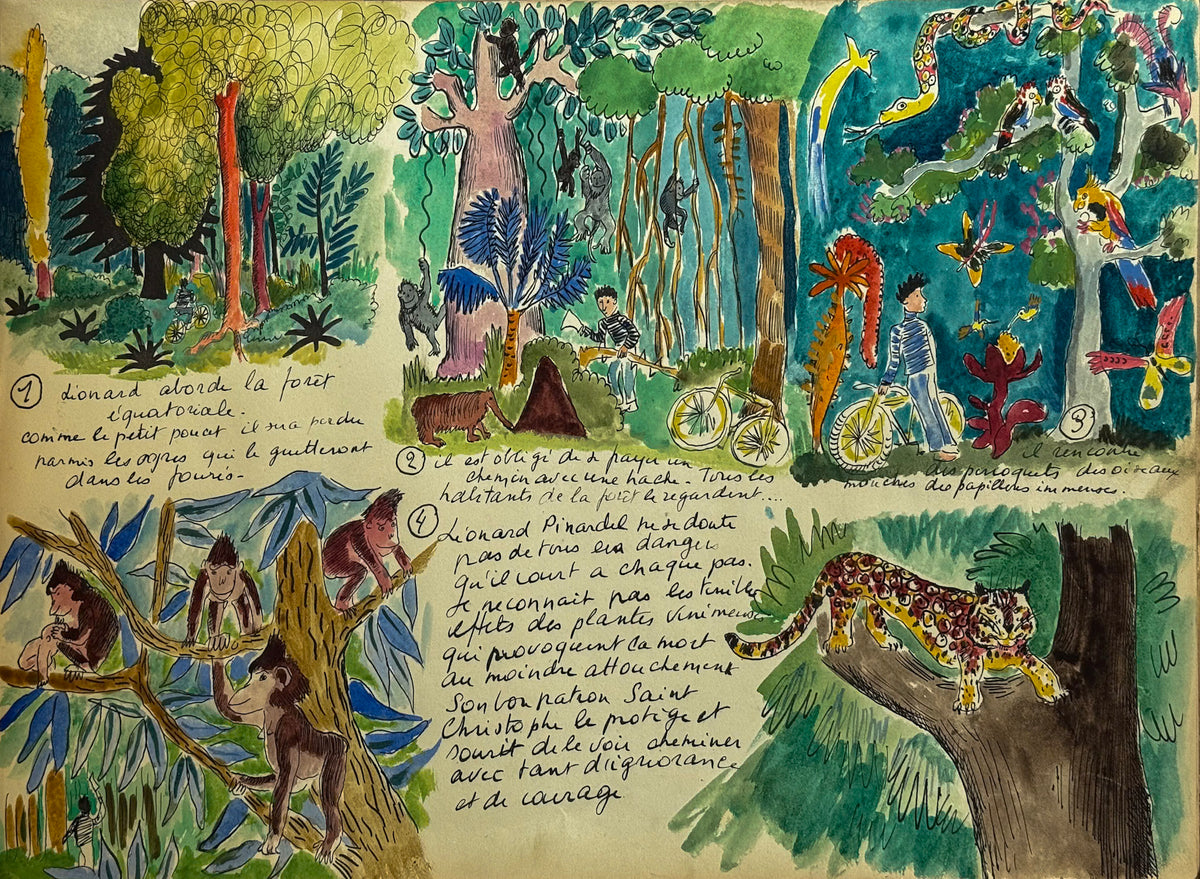 1
Lionard aborde la forêt
équatoriale.
comme le petit poucet il sera perdu
parmis les ogres qui le guetteront
dans les fourés-
2 il est obligé de se frayer un
chemin avec une hache. Tous les
habitants de la forêt le regardent....
3
il rencontre
des perroquets des oiseaux
mouches des papillons immenses.
4 Lionard Pinardel ne se doute
pas de tous les dangers
qu'il court a chaque pas.
Je reconnait pas les terribles
effets des plantes vénimeuses
qui provoquent la mort
au moindre attouchement
Son bon patron Saint
Christophe le protège et
sourit de le voir cheminer
avec tant d'ignorance
et de courage